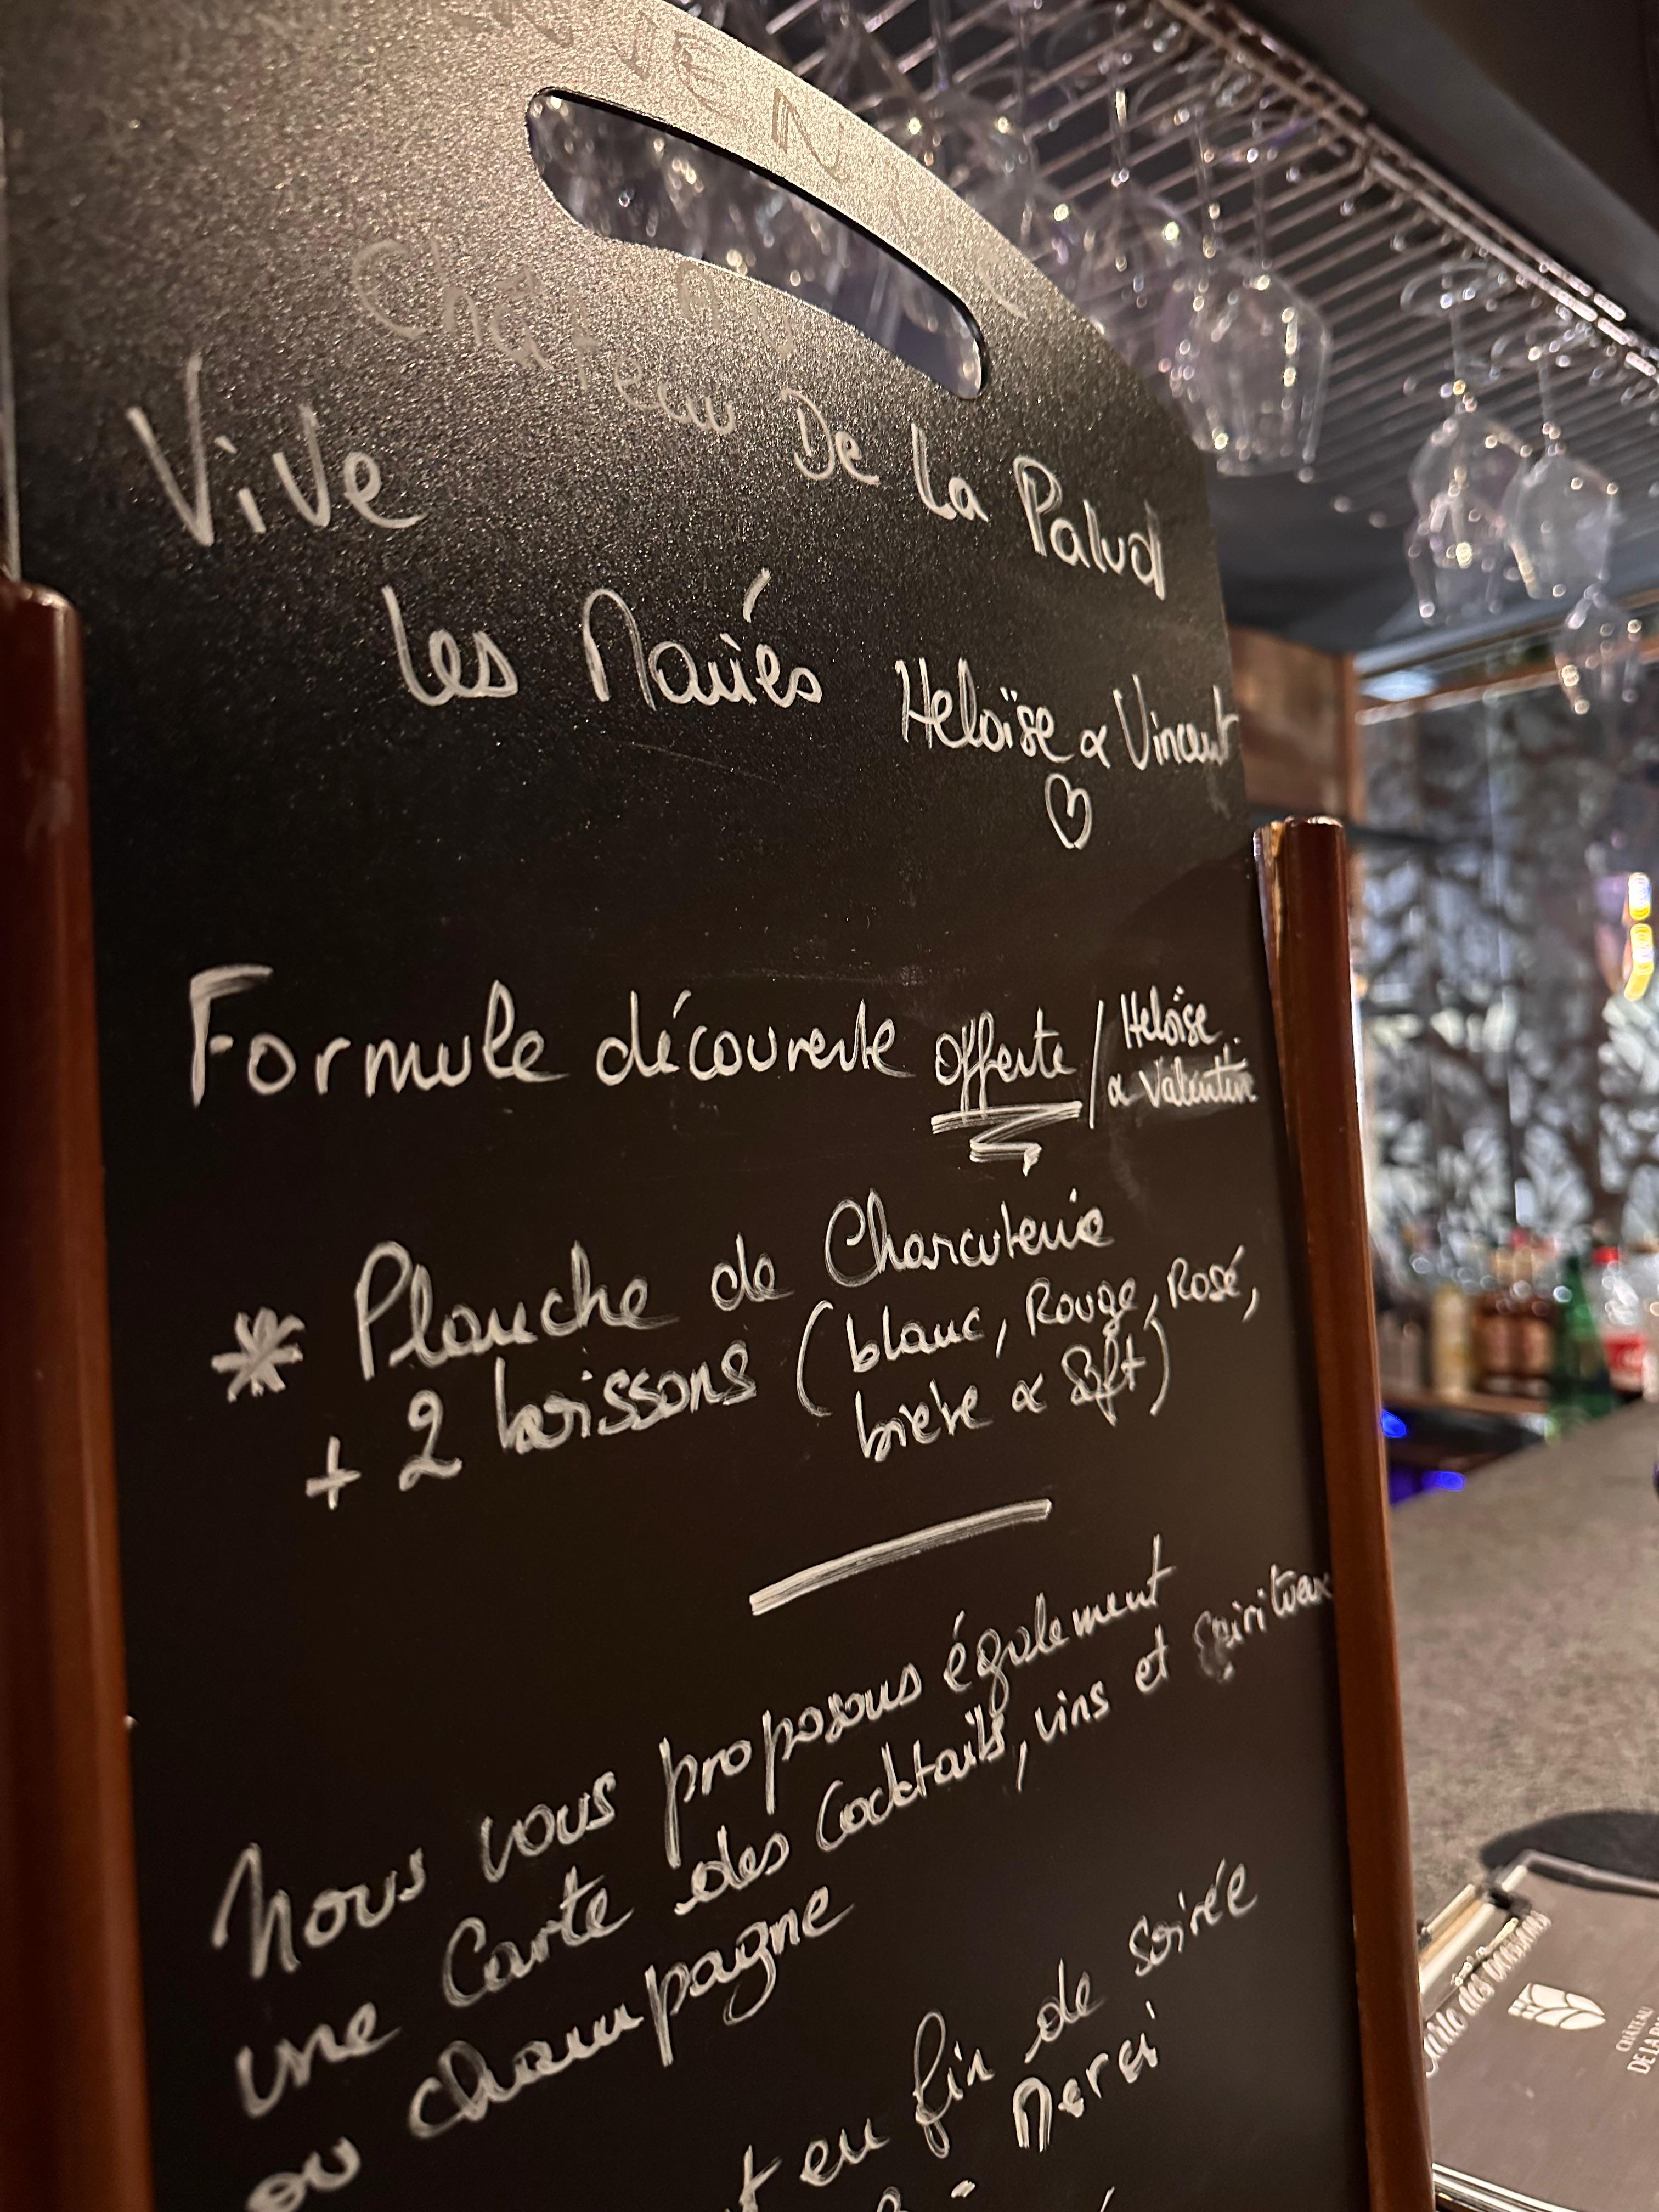 Château De La Palud
Vive
les Mariés
Heloïse & Vincent
Formule découverte offerte / Heloïse
& Valentin
* Planche de Charcuterie
+ 2 boissons (blanc, Rouge, Rosé,
bière & Soft)
Nous vous proposons également
une Carte des Cocktails, vins et spiritueux
ou champagne
en fin de soirée
Merci
Carte des boissons
CHÂTEAU
DE LA